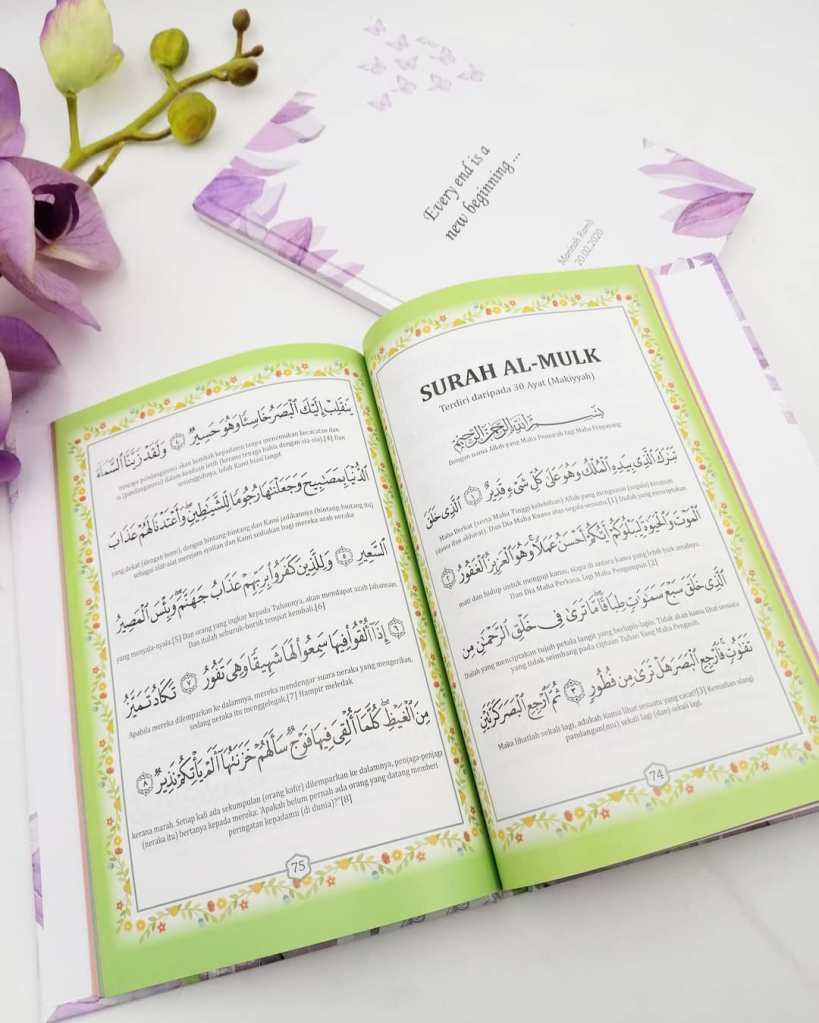 Every end is a
new beginning ...
20.02.2020
SURAH AL-MULK
Terdiri daripada 30 Ayat (Makiyyah)
بِسْمِ ٱللَّهِ ٱلرَّحْمَٰنِ ٱلرَّحِيمِ
Dengan nama Allah yang Maha Pemurah lagi Maha Penyayang
تَبَٰرَكَ ٱلَّذِى بِيَدِهِ ٱلْمُلْكُ وَهُوَ عَلَىٰ كُلِّ شَىْءٍ قَدِيرٌ ١ ٱلَّذِى خَلَقَ
Maha Berkat (serta Maha Tinggi kelebihan) Allah yang menguasai (segala) kerajaan
(dunia dan akhirat). Dan Dia Maha Kuasa atas segala sesuatu.[1] Dialah yang menciptakan
ٱلْمَوْتَ وَٱلْحَيَوٰةَ لِيَبْلُوَكُمْ أَيُّكُمْ أَحْسَنُ عَمَلًا وَهُوَ ٱلْعَزِيزُ ٱلْغَفُورُ ٢
mati dan hidup untuk menguji kamu, siapa di antara kamu yang lebih baik amalnya.
Dan Dia Maha Perkasa, lagi Maha Pengampun.[2]
ٱلَّذِى خَلَقَ سَبْعَ سَمَٰوَٰتٍ طِبَاقًا مَّا تَرَىٰ فِى خَلْقِ ٱلرَّحْمَٰنِ مِن
Dialah yang menciptakan tujuh petala langit yang berlapis-lapis. Tidak akan kamu lihat sesuatu
yang tidak seimbang pada ciptaan Tuhan Yang Maha Pengasih.
تَفَٰوُتٍ فَٱرْجِعِ ٱلْبَصَرَ هَلْ تَرَىٰ مِن فُطُورٍ ٣ ثُمَّ ٱرْجِعِ ٱلْبَصَرَ كَرَّتَيْنِ
Maka lihatlah sekali lagi, adakah kamu lihat sesuatu yang cacat?[3] Kemudian ulangi
pandangan(mu) sekali lagi (dan) sekali lagi.
74
يَنقَلِبْ إِلَيْكَ ٱلْبَصَرُ خَاسِئًا وَهُوَ حَسِيرٌ ٤ وَلَقَدْ زَيَّنَّا ٱلسَّمَآءَ
nescaya pandanganmu akan kembali kepadamu tanpa menemukan kecacatan dan
ia (pandanganmu) dalam keadaan letih (kerana tenaga habis dengan sia-sia).[4] Dan
sesungguhnya, telah Kami hiasi langit
ٱلدُّنْيَا بِمَصَٰبِيحَ وَجَعَلْنَٰهَا رُجُومًا لِّلشَّيَٰطِينِ وَأَعْتَدْنَا لَهُمْ عَذَابَ
yang dekat (dengan bumi), dengan bintang-bintang dan Kami jadikannya (bintang-bintang itu)
sebagai alat-alat merejam syaitan dan Kami sediakan bagi mereka azab neraka
ٱلسَّعِيرِ ٥ وَلِلَّذِينَ كَفَرُوا۟ بِرَبِّهِمْ عَذَابُ جَهَنَّمَ وَبِئْسَ ٱلْمَصِيرُ
yang menyala-nyala.[5] Dan orang yang ingkar kepada Tuhannya, akan mendapat azab Jahannam.
Dan itulah seburuk-buruk tempat kembali.[6]
٦ إِذَآ أُلْقُوا۟ فِيهَا سَمِعُوا۟ لَهَا شَهِيقًا وَهِىَ تَفُورُ ٧ تَكَادُ تَمَيَّزُ
Apabila mereka dilemparkan ke dalamnya, mereka mendengar suara neraka yang mengerikan,
sedang neraka itu menggelegak.[7] Hampir meledak
مِنَ ٱلْغَيْظِ كُلَّمَآ أُلْقِىَ فِيهَا فَوْجٌ سَأَلَهُمْ خَزَنَتُهَآ أَلَمْ يَأْتِكُمْ نَذِيرٌ ٨
kerana marah. Setiap kali ada sekumpulan (orang kafir) dilemparkan ke dalamnya, penjaga-penjaga
(neraka itu) bertanya kepada mereka: "Apakah belum pernah ada orang yang datang memberi
peringatan kepadamu (di dunia)?"[8]
75